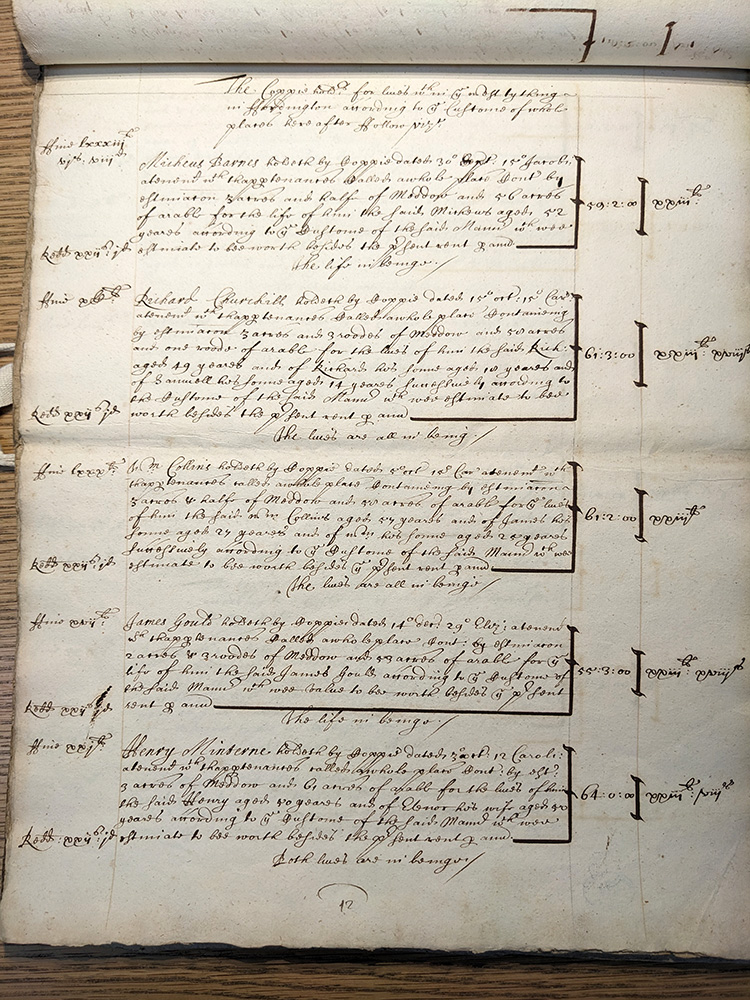 The Coppie hold.rs for lives w.th in y.e west tything
in Fordington according to y.e Custome of whole
places here after Follow viz.t
Fine lxxxiij.li
vj.s viij.d
Micheus Barnes holdeth by Coppie dated 30° Sept. 15° Jacobi
a tenem.t w.th thapp.tenances Called a whole place Cont. by
estimacon 3 acres and halfe of Meddow and 56 acres
of arable for the life of him the said Micheus aged 52
yeares according to y.e Custome of the said Mann.r w.ch wee
Redd xxij.s jd estimate to bee worth besides the p.sent rent p ann
59:2:00 xxiij.li
The life in beinge
Richard Churchill holdeth by Coppie dated 15° oct. 15° Car.
a tenem.t w.th thapp.tenances Called a whole place Containeing
by estimacon 3 acres and 3 roodes of Meddow and 58 acres
and one roode of arable for the lives of him the said Rich:
aged 49 yeares and of Richard his sonne aged 18 yeares and
of Samuell his sonne aged 14 yeares successively according to
the Custome of the said Mann.r w.ch wee estimate to bee
Redd xxij.s jd worth besides the p.sent rent p ann
61:3:00
The lives are all in being
Fine lxxx.li W.m Collins holdeth by Coppie dated 5° oct 15° Car a tenem.t w.th
thapp.tenances called a whole place Containeing by estimacon
3 acres & halfe of Meddow and 58 acres of arable for y.e lives
of him the said W.m Collins aged 57 yeares and of James his
sonne aged 27 yeares and of W.m his sonne aged 25 yeares
successively according to y.e Custome of the said Mann.r w.ch wee
Redd xxij.s jd estimate to bee worth besides y.e p.sent rent p ann
61:2:00 xxiij.li
The lives are all in beinge
Fine xvij.li James Gould holdeth by Coppie dated 14° dec. 29° Eliz: a tenem.t
w.th thapp.tenances Called a whole place Cont: by estimacon
2 acres & 3 roodes of Meddow and 53 acres of arable for y.e
life of him the said James Gould according to y.e Custome of
the said Mann.r w.ch wee value to bee worth besides y.e p.sent
Redd xxij.s jd rent p ann
55:3:00
The life in beinge
Fine xxj.li Henry Minterne holdeth by Coppie dated 3° oct. 12 Caroli
a tenem.t w.th thapp.tenances called a whole place Cont. by est.
3 acres of Meddow and 61 acres of arable for the lives of him
the said Henry aged 50 yeares and of Elenor his wife aged 50
yeares according to y.e Custome of the said Mann.r w.ch wee
Redd: xxij.s jd estimate to bee worth besides the p.sent rent p ann
64:0:00
Both lives are in beinge
12